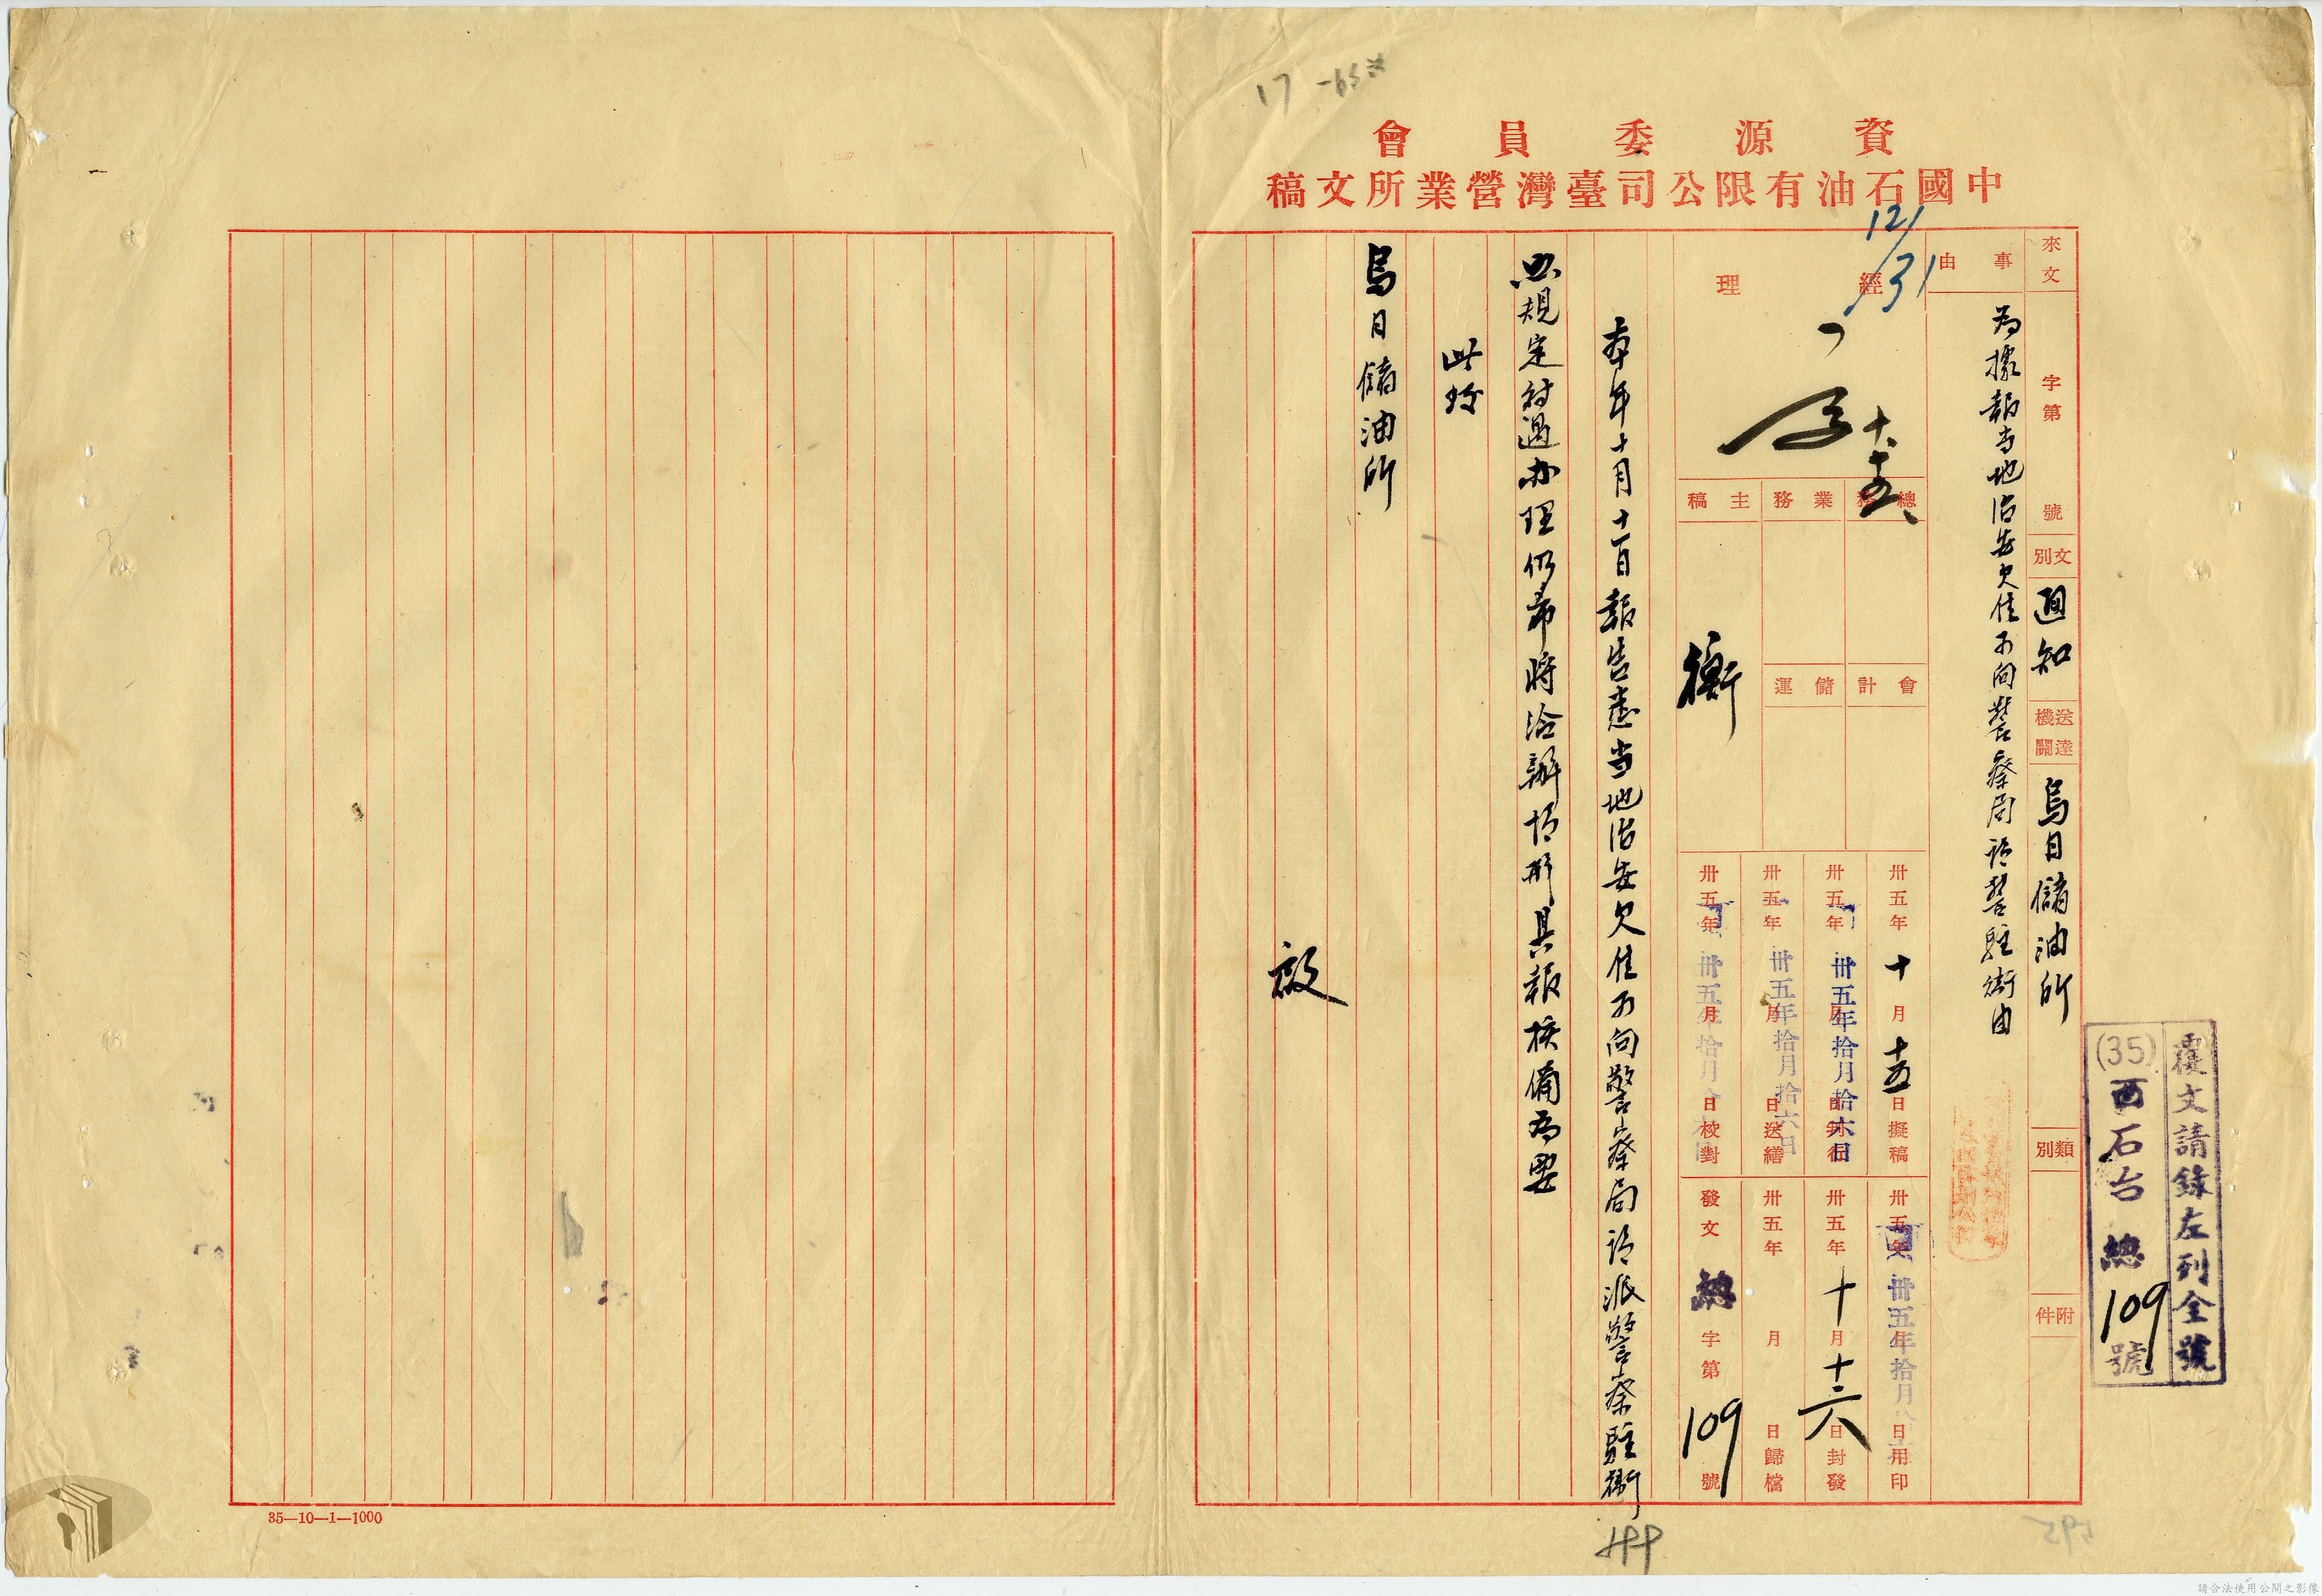 資源委員會
中國石油有限公司臺灣營業所文稿
12/31
來文 字第 號
文別 通知
送達機關 烏日儲油所
類別
附件
事由
為據報当地治安欠佳可向警察局請警駐衛由
經理
十、十五、
總務
業務
主稿
會計
儲運
衡
卅五年十月十五日擬稿
卅五年 月 日判行
卅五年拾月拾六日
卅五年 月 日送繕
卅五年拾月拾六日
卅五年 月 日校對
卅五年拾月拾 日
卅五年 月 日用印
卅五年拾月
卅五年十月十六日封發
卅五年 月 日歸檔
發文 總 字第 109 號
本年十月十一日報告悉当地治安欠佳可向警察局請派警察駐衛
照規定付過办理仍希將洽辦情形具報核備為要
此致
烏日儲油所
啟
覆文請錄左列全號
(35)酉石台總109號
35—10—1—1000
請合法使用公開之影像